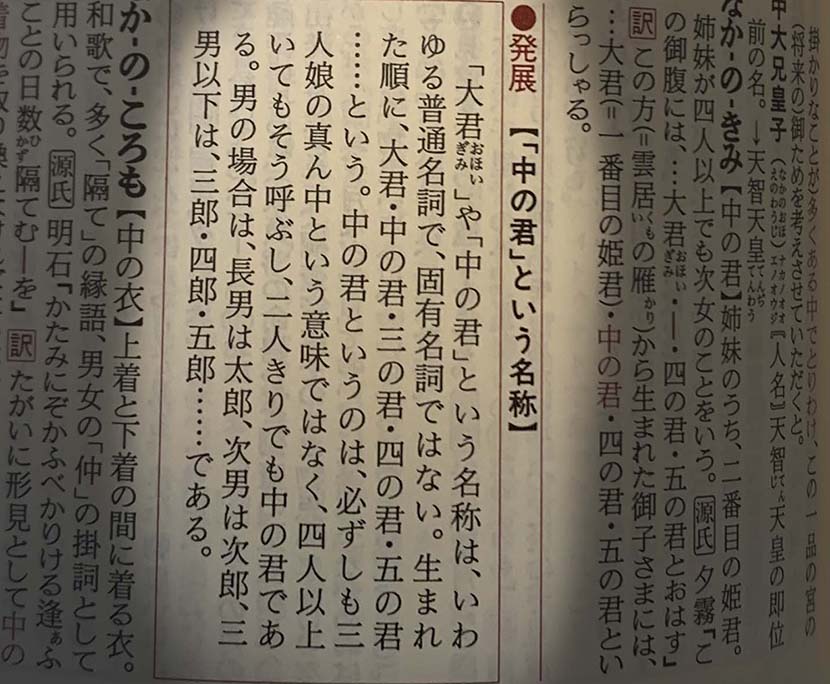 掛かりなことが)多くある中でとりわけ、この一品の宮の
(将来の)御ためを考えさせていただくと。
中大兄皇子(なかのおほえのわうじ ナカノオオエノオウジ)〖人名〗天智天皇の即位
前の名。→天智天皇
なか-の-きみ【中の君】姉妹のうち、二番目の姫君。
姉妹が四人以上でも次女のことをいう。源氏 夕霧「こ
の御腹には、…大君・―・四の君・五の君とおはす」
訳 この方(=雲居の雁)から生まれた御子さまには、
…大君(=一番目の姫君)・中の君・四の君・五の君とい
らっしゃる。
●発展 【「中の君」という名称】
「大君」や「中の君」という名称は、いわ
ゆる普通名詞で、固有名詞ではない。生まれ
た順に、大君・中の君・三の君・四の君・五の君
……という。中の君というのは、必ずしも三
人娘の真ん中という意味ではなく、四人以上
いてもそう呼ぶし、二人きりでも中の君であ
る。男の場合は、長男は太郎、次男は次郎、三
男以下は、三郎・四郎・五郎……である。
か-の-ころも【中の衣】上着と下着の間に着る衣。
和歌で、多く「隔て」の縁語、男女の「仲」の掛詞として
用いられる。源氏 明石「かたみにぞかふべかりける逢ふ
ことの日数隔てむ―を」訳 たがいに形見として中の